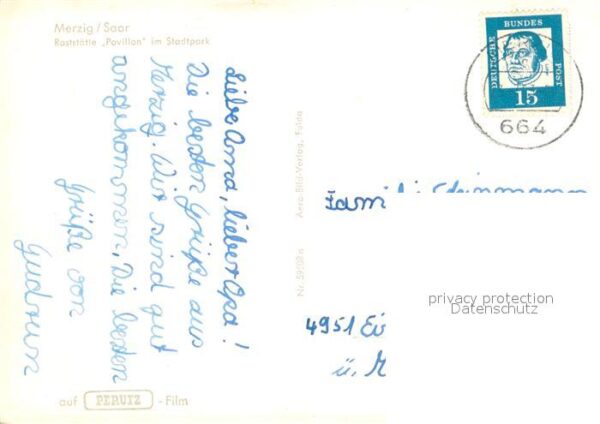 Merzig / Saar
Raststätte „Pavillon" im Stadtpark
Liebe Oma, lieber Opa!
Die besten Grüße aus
Merzig. Wir sind gut
angekommen. Die besten
Grüße von
Gudrun
auf PERUTZ - Film
Arra-Bild-Verlag, Fulda
DEUTSCHE BUNDES POST
15
664
Fami
4951 Ei
ü. M
privacy protection
Datenschutz